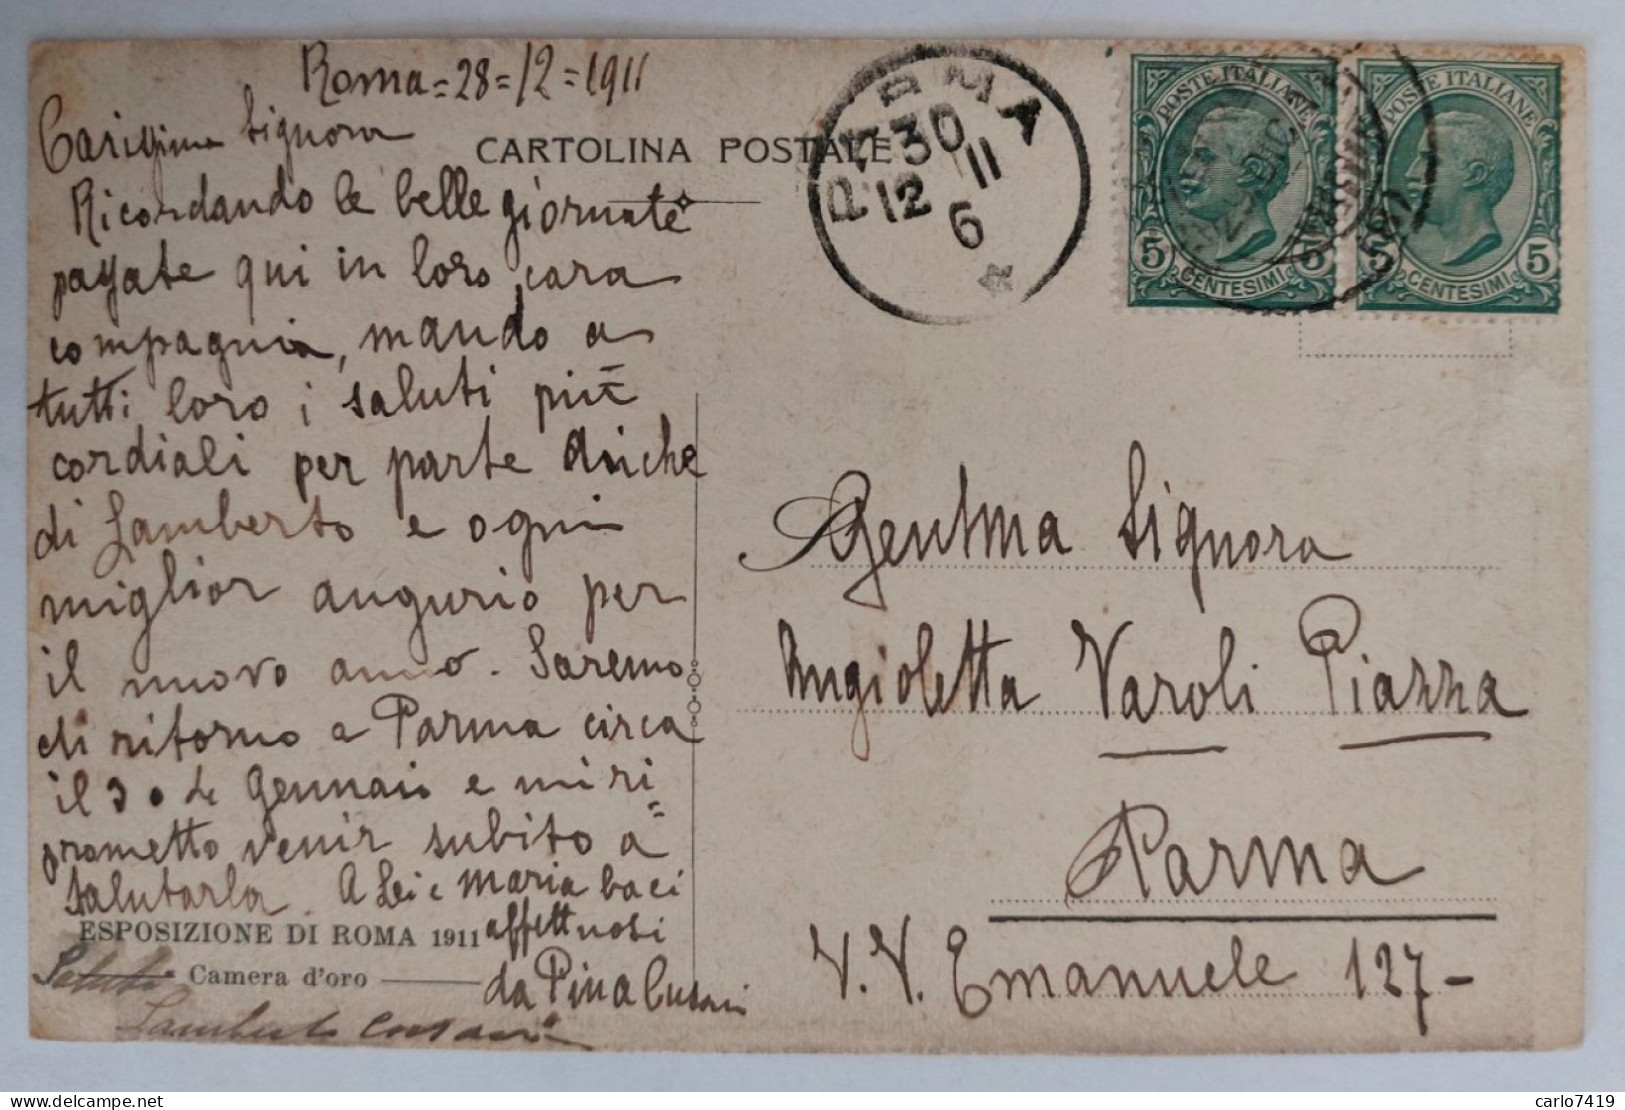 Roma = 28 = 12 = 1911
Carissima Signora
CARTOLINA POSTALE
Ricordando le belle giornate
passate qui in loro cara
compagnia, mando a
tutti loro i saluti più
cordiali per parte anche
di Lamberto e ogni
miglior augurio per
il nuovo anno. Saremo
di ritorno a Parma circa
il 3 o 4 Gennaio e mi ri
prometto venir subito a =
salutarla. A Lei e Maria baci
affettuosi
da Pina
ESPOSIZIONE DI ROMA 1911
Camera d'oro
Saluti
Lamberto
PARMA
30
12 11
6
POSTE ITALIANE
5 CENTESIMI 5
POSTE ITALIANE
5 CENTESIMI 5
Gentma Signora
Angioletta Varoli Piazza
Parma
V. V. Emanuele 127-
carlo7419